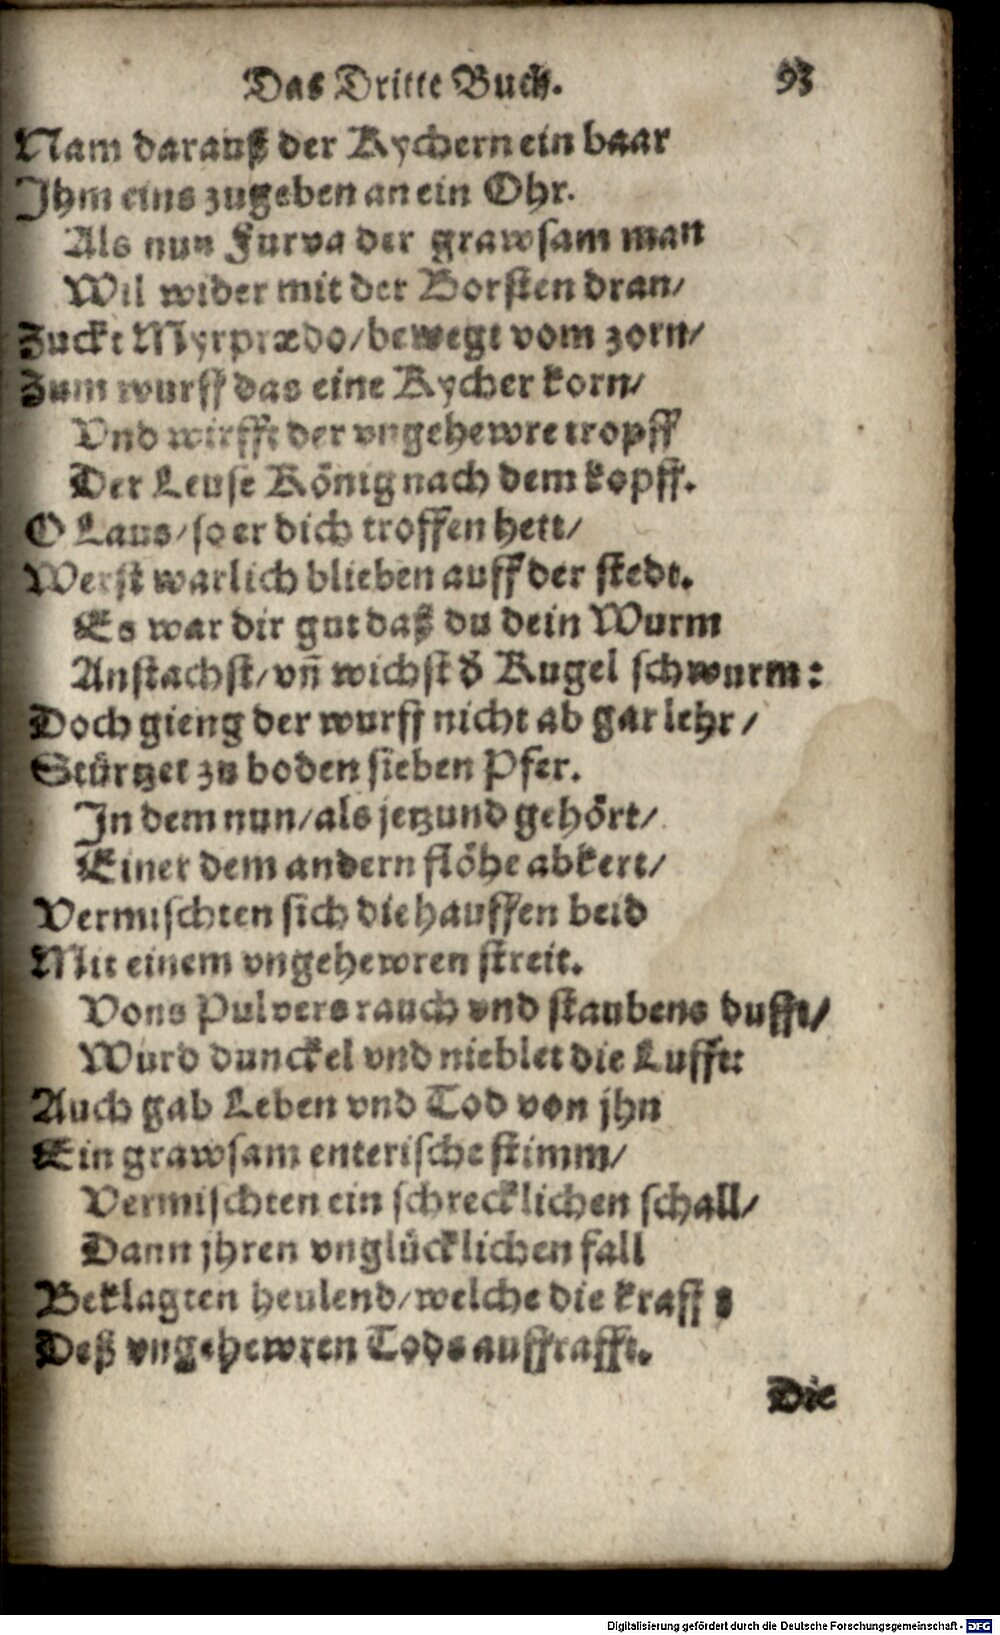 Das Dritte Buch. 93
Nam darauß der Kychern ein baar
Jhm eins zugeben an ein Ohr.
Als nun Furva der grawsam man
Wil wider mit der Borsten dran/
Zuckt Myrprædo/bewegt vom zorn/
Zum wurff das eine Kycher korn/
Vnd wirfft der vngehewre tropff
Der Leuse König nach dem kopff.
O Laus/so er dich troffen hett/
Werst warlich blieben auff der stedt.
Es war dir gut daß du dein Wurm
Anstachst/vñ wichst d̕ Kugel schwurm:
Doch gieng der wurff nicht ab gar lehr/
Stürtzet zu boden sieben Pfer.
Jn dem nun/als jetzund gehört/
Einer dem andern flöhe abkert/
Vermischten sich die hauffen beid
Mit einem vngehewren streit.
Vons Pulvers rauch vnd staubens dufft/
Wurd dunckel vnd nieblet die Lufft:
Auch gab Leben vnd Tod von jhn
Ein grawsam enterische stimm/
Vermischten ein schrecklichen schall/
Dann jhren vnglücklichen fall
Beklagten heulend/welche die krafft
Deß vngehewren Tods auffrafft.
Die
Digitalisierung gefördert durch die Deutsche Forschungsgemeinschaft - DFG